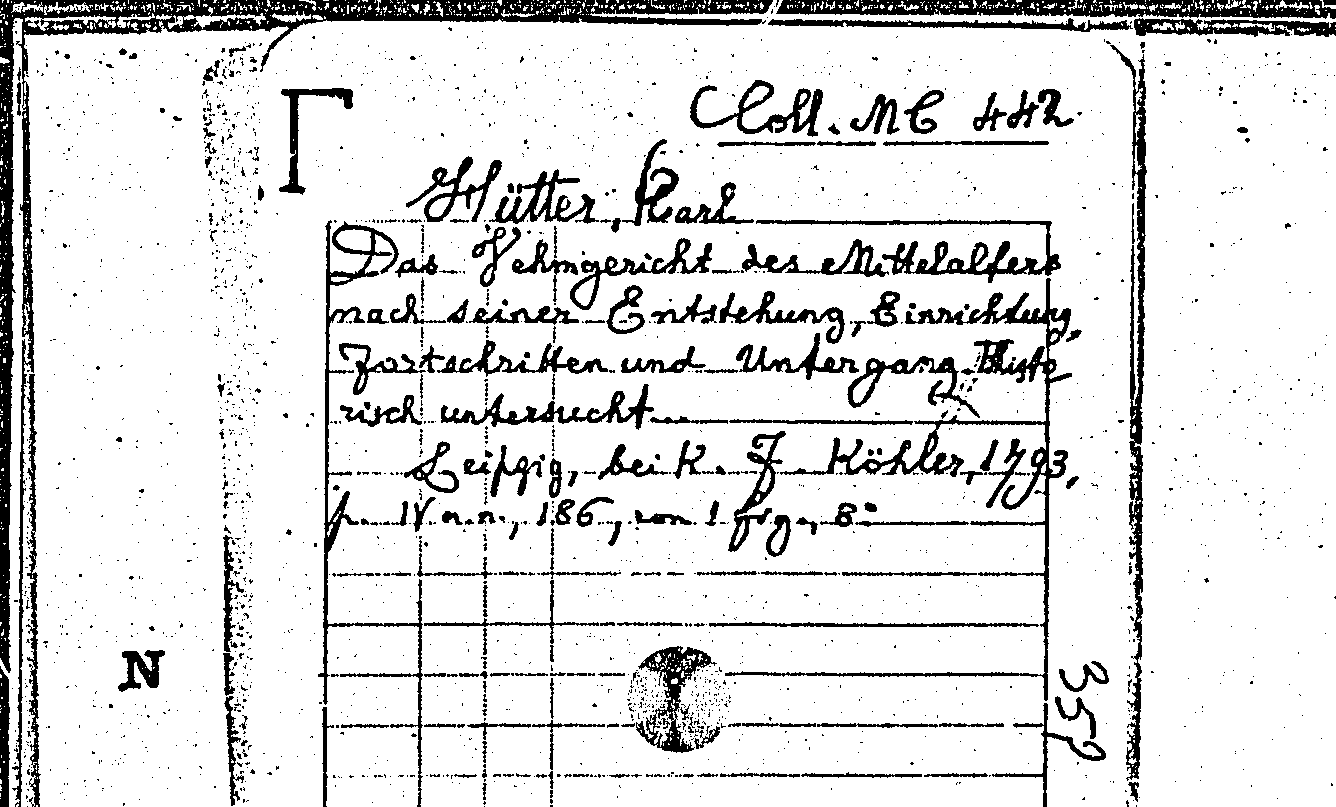 Γ
Coll. MC 442
Hütter, Karl
Das Vehmgericht des Mittelalters
nach seiner Entstehung, Einrichtung,
Fortschritten und Untergang. Histo
risch untersucht...
Leipzig, bei K. F. Köhler, 1793,
p. IV n.n., 186, con 1 frg., 8°
N
359